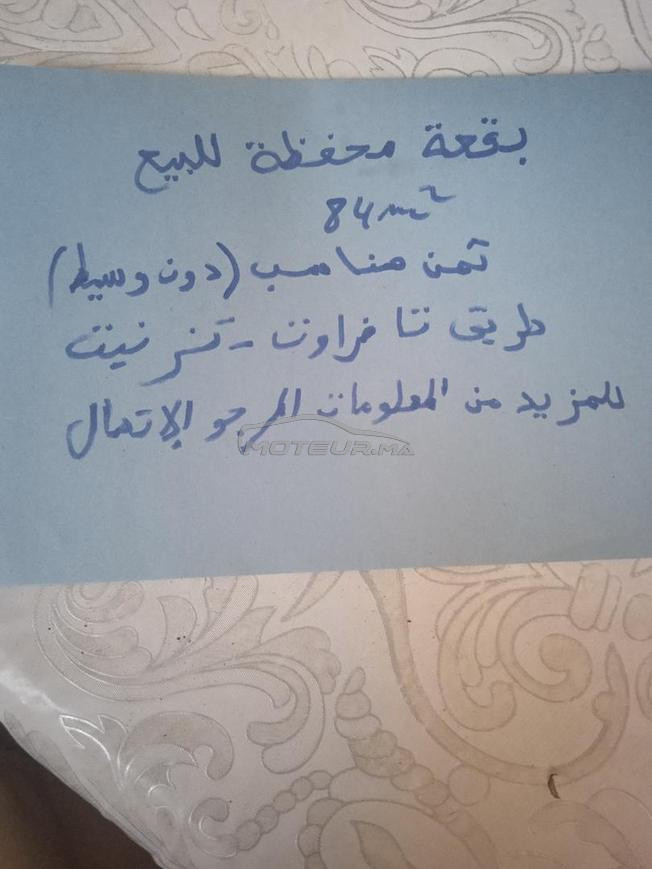 بقعة محفظة للبيع
84m²
ثمن مناسب (دون وسيط)
طريق تافراوت - تزنيت
للمزيد من المعلومات المرجو الإتصال
MOTEUR.MA